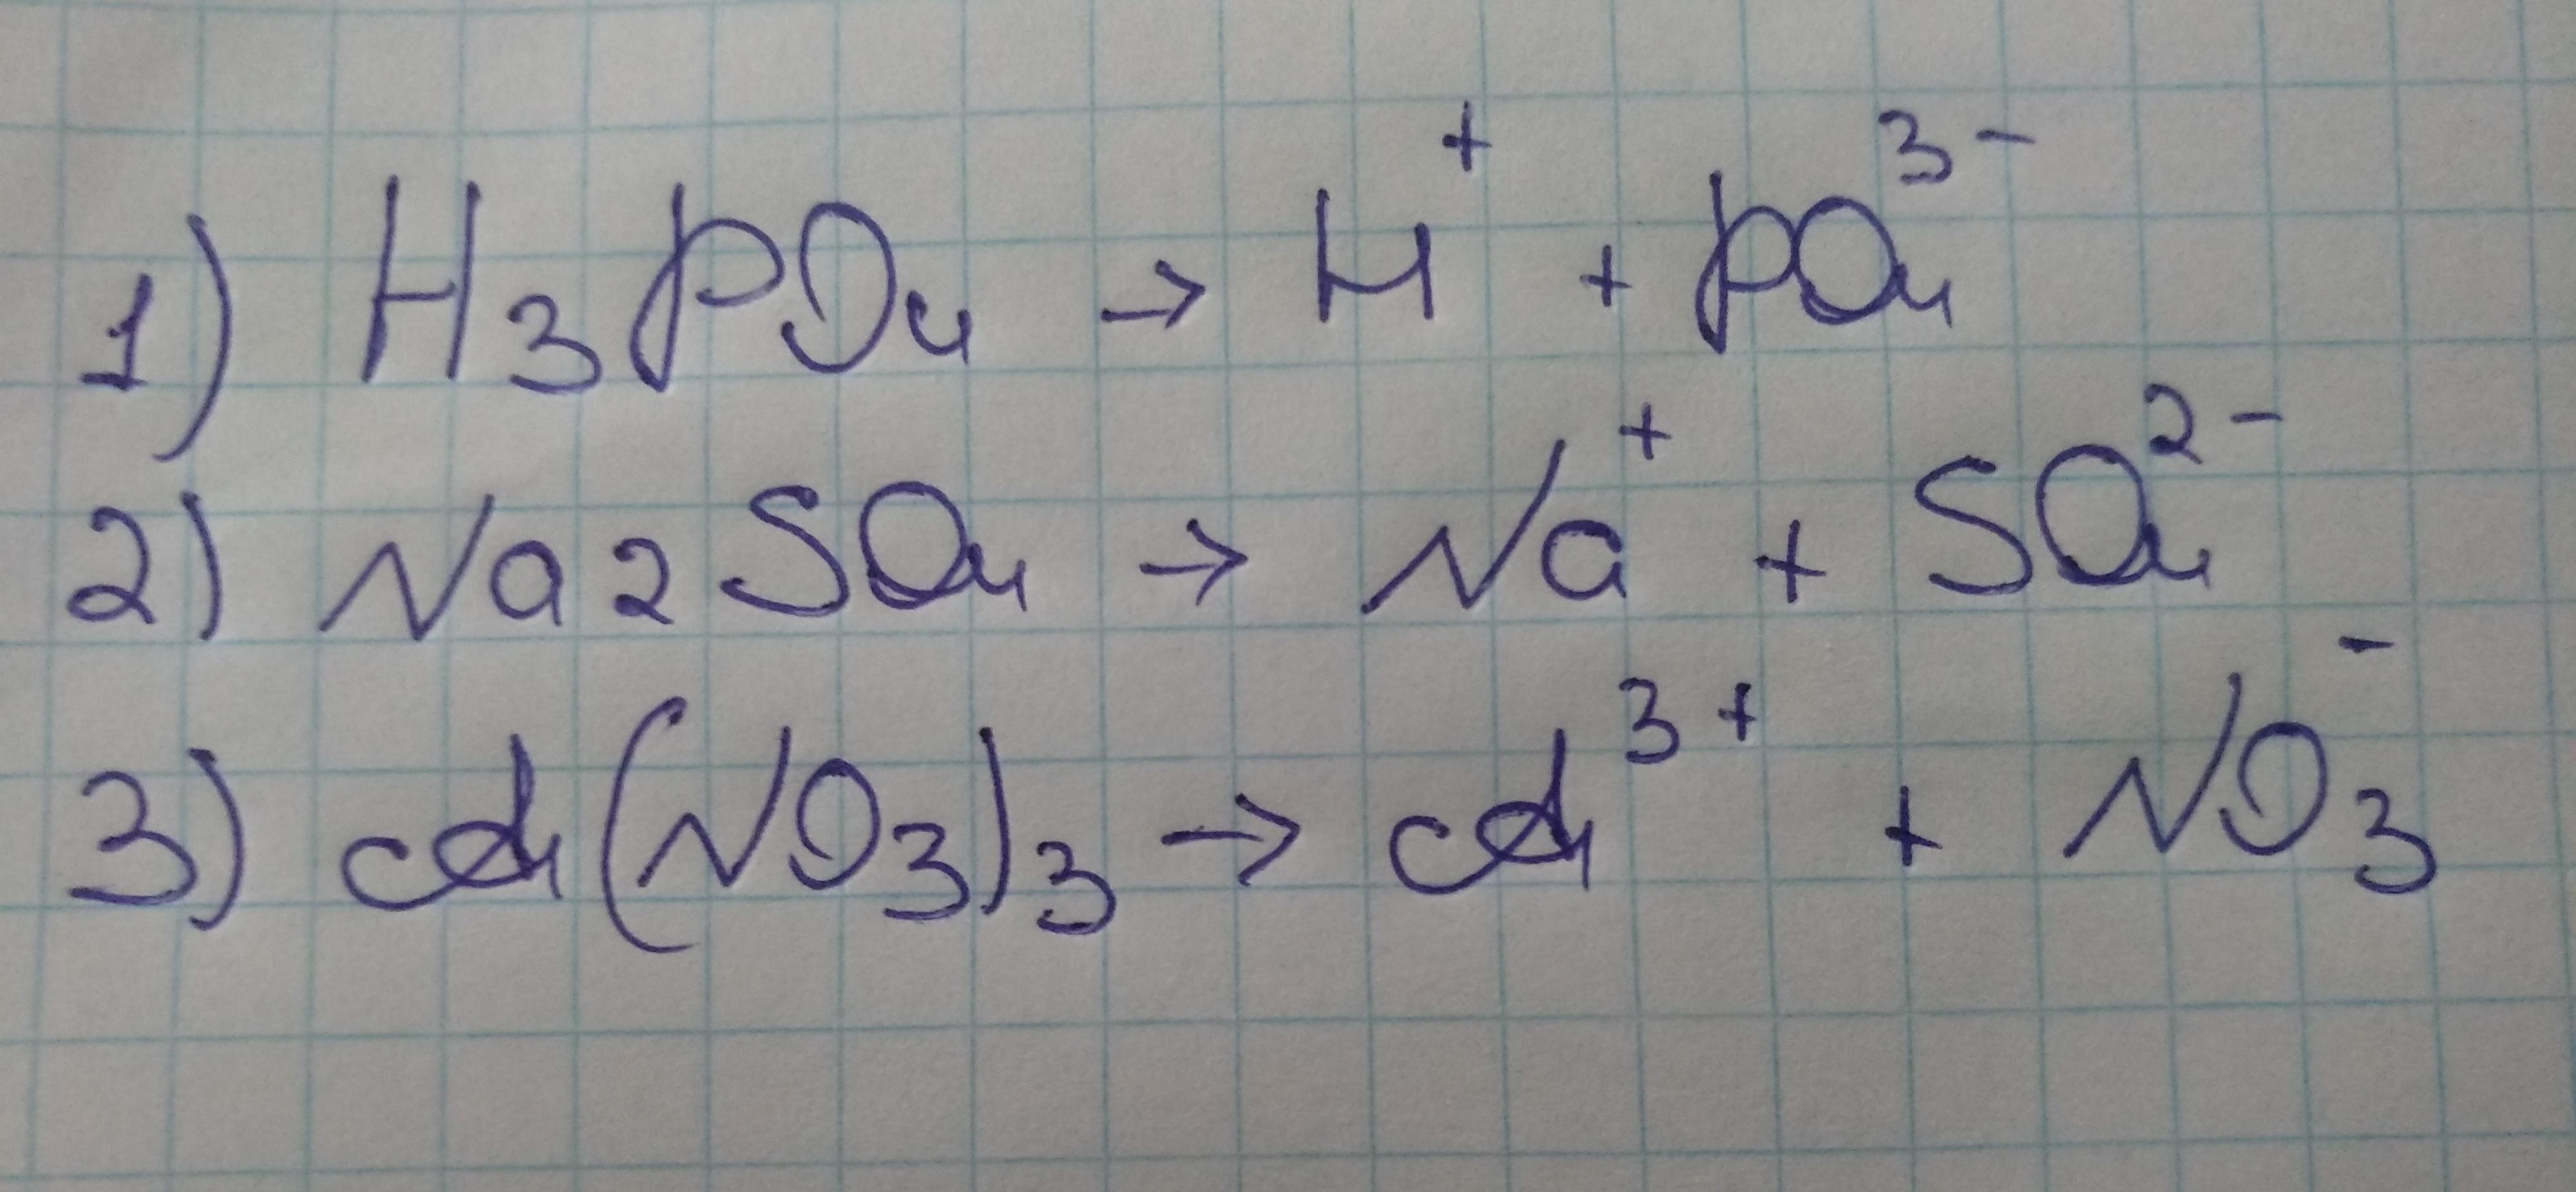 1) H₃PO₄ → H⁺ + PO₄³⁻
2) Na₂SO₄ → Na⁺ + SO₄²⁻
3) Al(NO₃)₃ → Al³⁺ + NO₃⁻